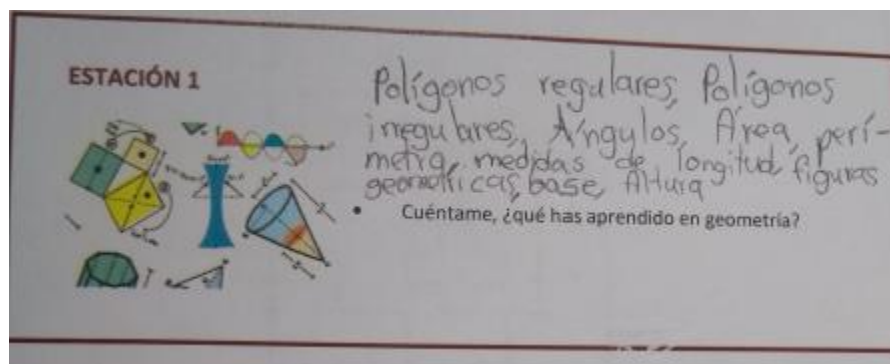 ESTACIÓN 1
Polígonos regulares, Polígonos
irregulares, Ángulos, Área, perí-
metro, medidas de longitud, figuras
geométricas, base, Altura
• Cuéntame, ¿qué has aprendido en geometría?